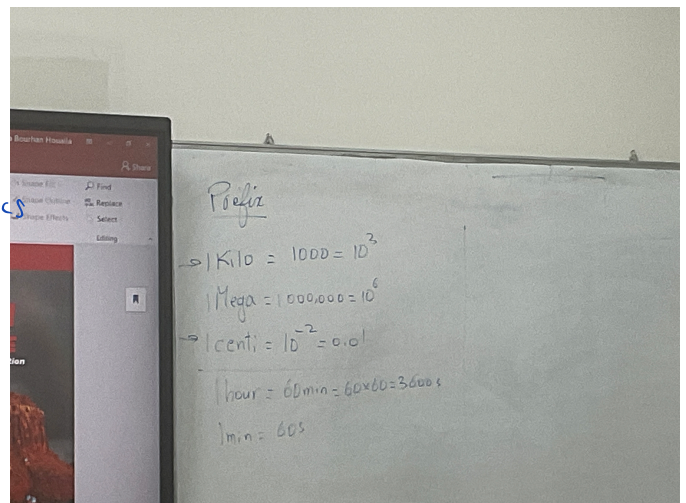 Bourhan Houalla
Share
Find
Shape Outline
Replace
cs
Shape Effects
Select
Editing
Prefix
→ 1 Kilo = 1000 = 10³
1 Mega = 1000,000 = 10⁶
→ 1 centi = 10⁻² = 0.01
1 hour = 60min = 60×60 = 3600s
1min = 60s